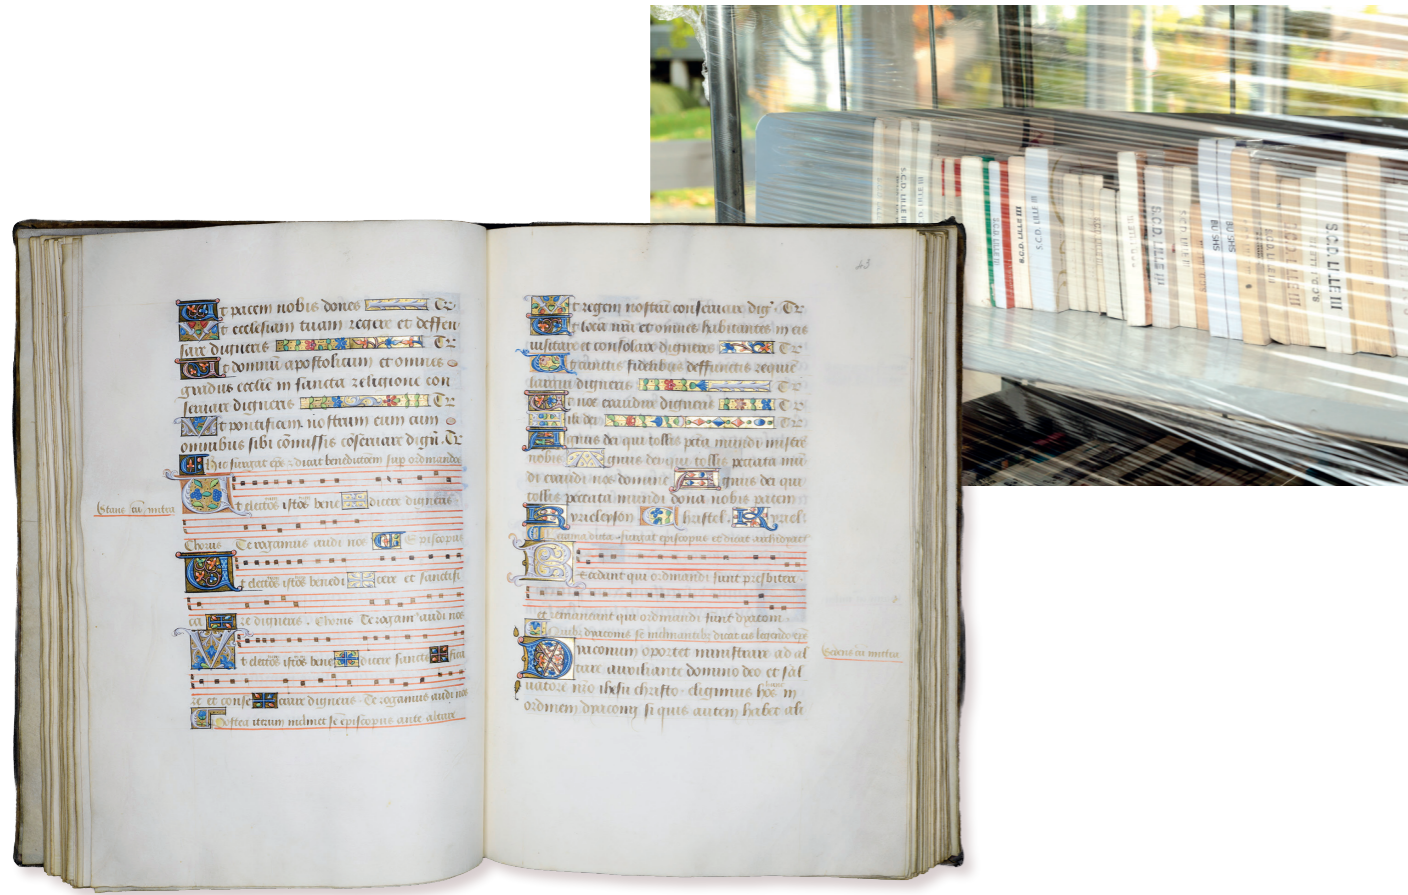 Et pacem nobis dones Tr
Ut ecclesiam tuam regere et deffen
sare digneris Tr
Ut domnũ apostolicum et omnes
gradus ecclie in sancta religione con
seruare digneris Tr
Ut pontificem nostrum cum cum
omnibus sibi cõmissis cõseruare dign̄ Tr
Hic surgat eps dicat benedictõem sup ordinandos
Ut electos istos bene dicere digneris
Stans cũ mitra
Chorus Te rogamus audi nos Episcopus
Ut electos istos benedi cere et sanctifi
ca re digneris . Chorus Te rogam audi nos
Ut electos istos bene dicere sancti fica
re et conse crare digneris . Te rogamus audi nos
Postea iterum se episcopus ante altare
43
Ut regem nostrũ conseruare dig Tr
Ut loca et omnes habitantes in eis
uisitare et consolare digneris Tr
Ut cunctis fidelibus deffunctis requiē
digneris Tr
Ut nos exaudire digneris Tr
fili dei Tr
Agnus dei qui tollis pctã mundi misere
nobis Agnus dei qui tollis peccata mũ
di exaudi nos domine Agnus dei qui
tollis peccata mundi dona nobis pacem
Kyrieleyson Christel Kyriel
surgat episcopus et dicat archidyaco
Recedant qui ordinandi sunt presbiteri
et remaneant qui ordinandi sunt dyaconi
dyaconis se inclinantibus dicat eis legendo eps
Dyaconum oportet ministrare ad al
Sedens cũ mitra
tare auxiliante domino deo et sal
uatore nr̃o ihesu christo . eligimus hos in
ordinem dyaconij si quis autem habet ali
S.C.D. LILLE III
S.C.D. LILLE III
S.C.D. LILLE III
S.C.D. LILLE III
S.C.D. LILLE III
BU SHS
BU SHS
S.C.D. LILLE III
S.C.D. LILLE III
S.C.D. LILLE III